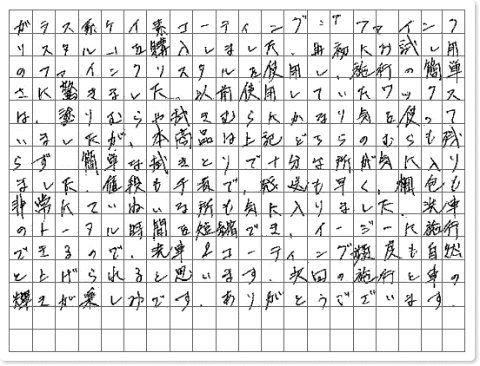 ガラス系ケイ素コーティング「ファインク
リスタル」を購入しました。最初にお試し用
のファインクリスタルを使用し、施行の簡単
さに驚きました。以前使用していたワックス
は、塗りむらや拭きむらにかなり気を使って
いましたが、本商品は上記どちらのむらも残
らず、簡単な拭きとりで十分な所が気に入り
ました。値段も手頃で、発送も早く、梱包も
非常にていねいな所も気に入りました。洗車
のトータル時間を短縮でき、イージーに施行
できるので、洗車&コーティング頻度も自然
と上げられると思います。次回の施行と車の
輝きが楽しみです。ありがとうございます。